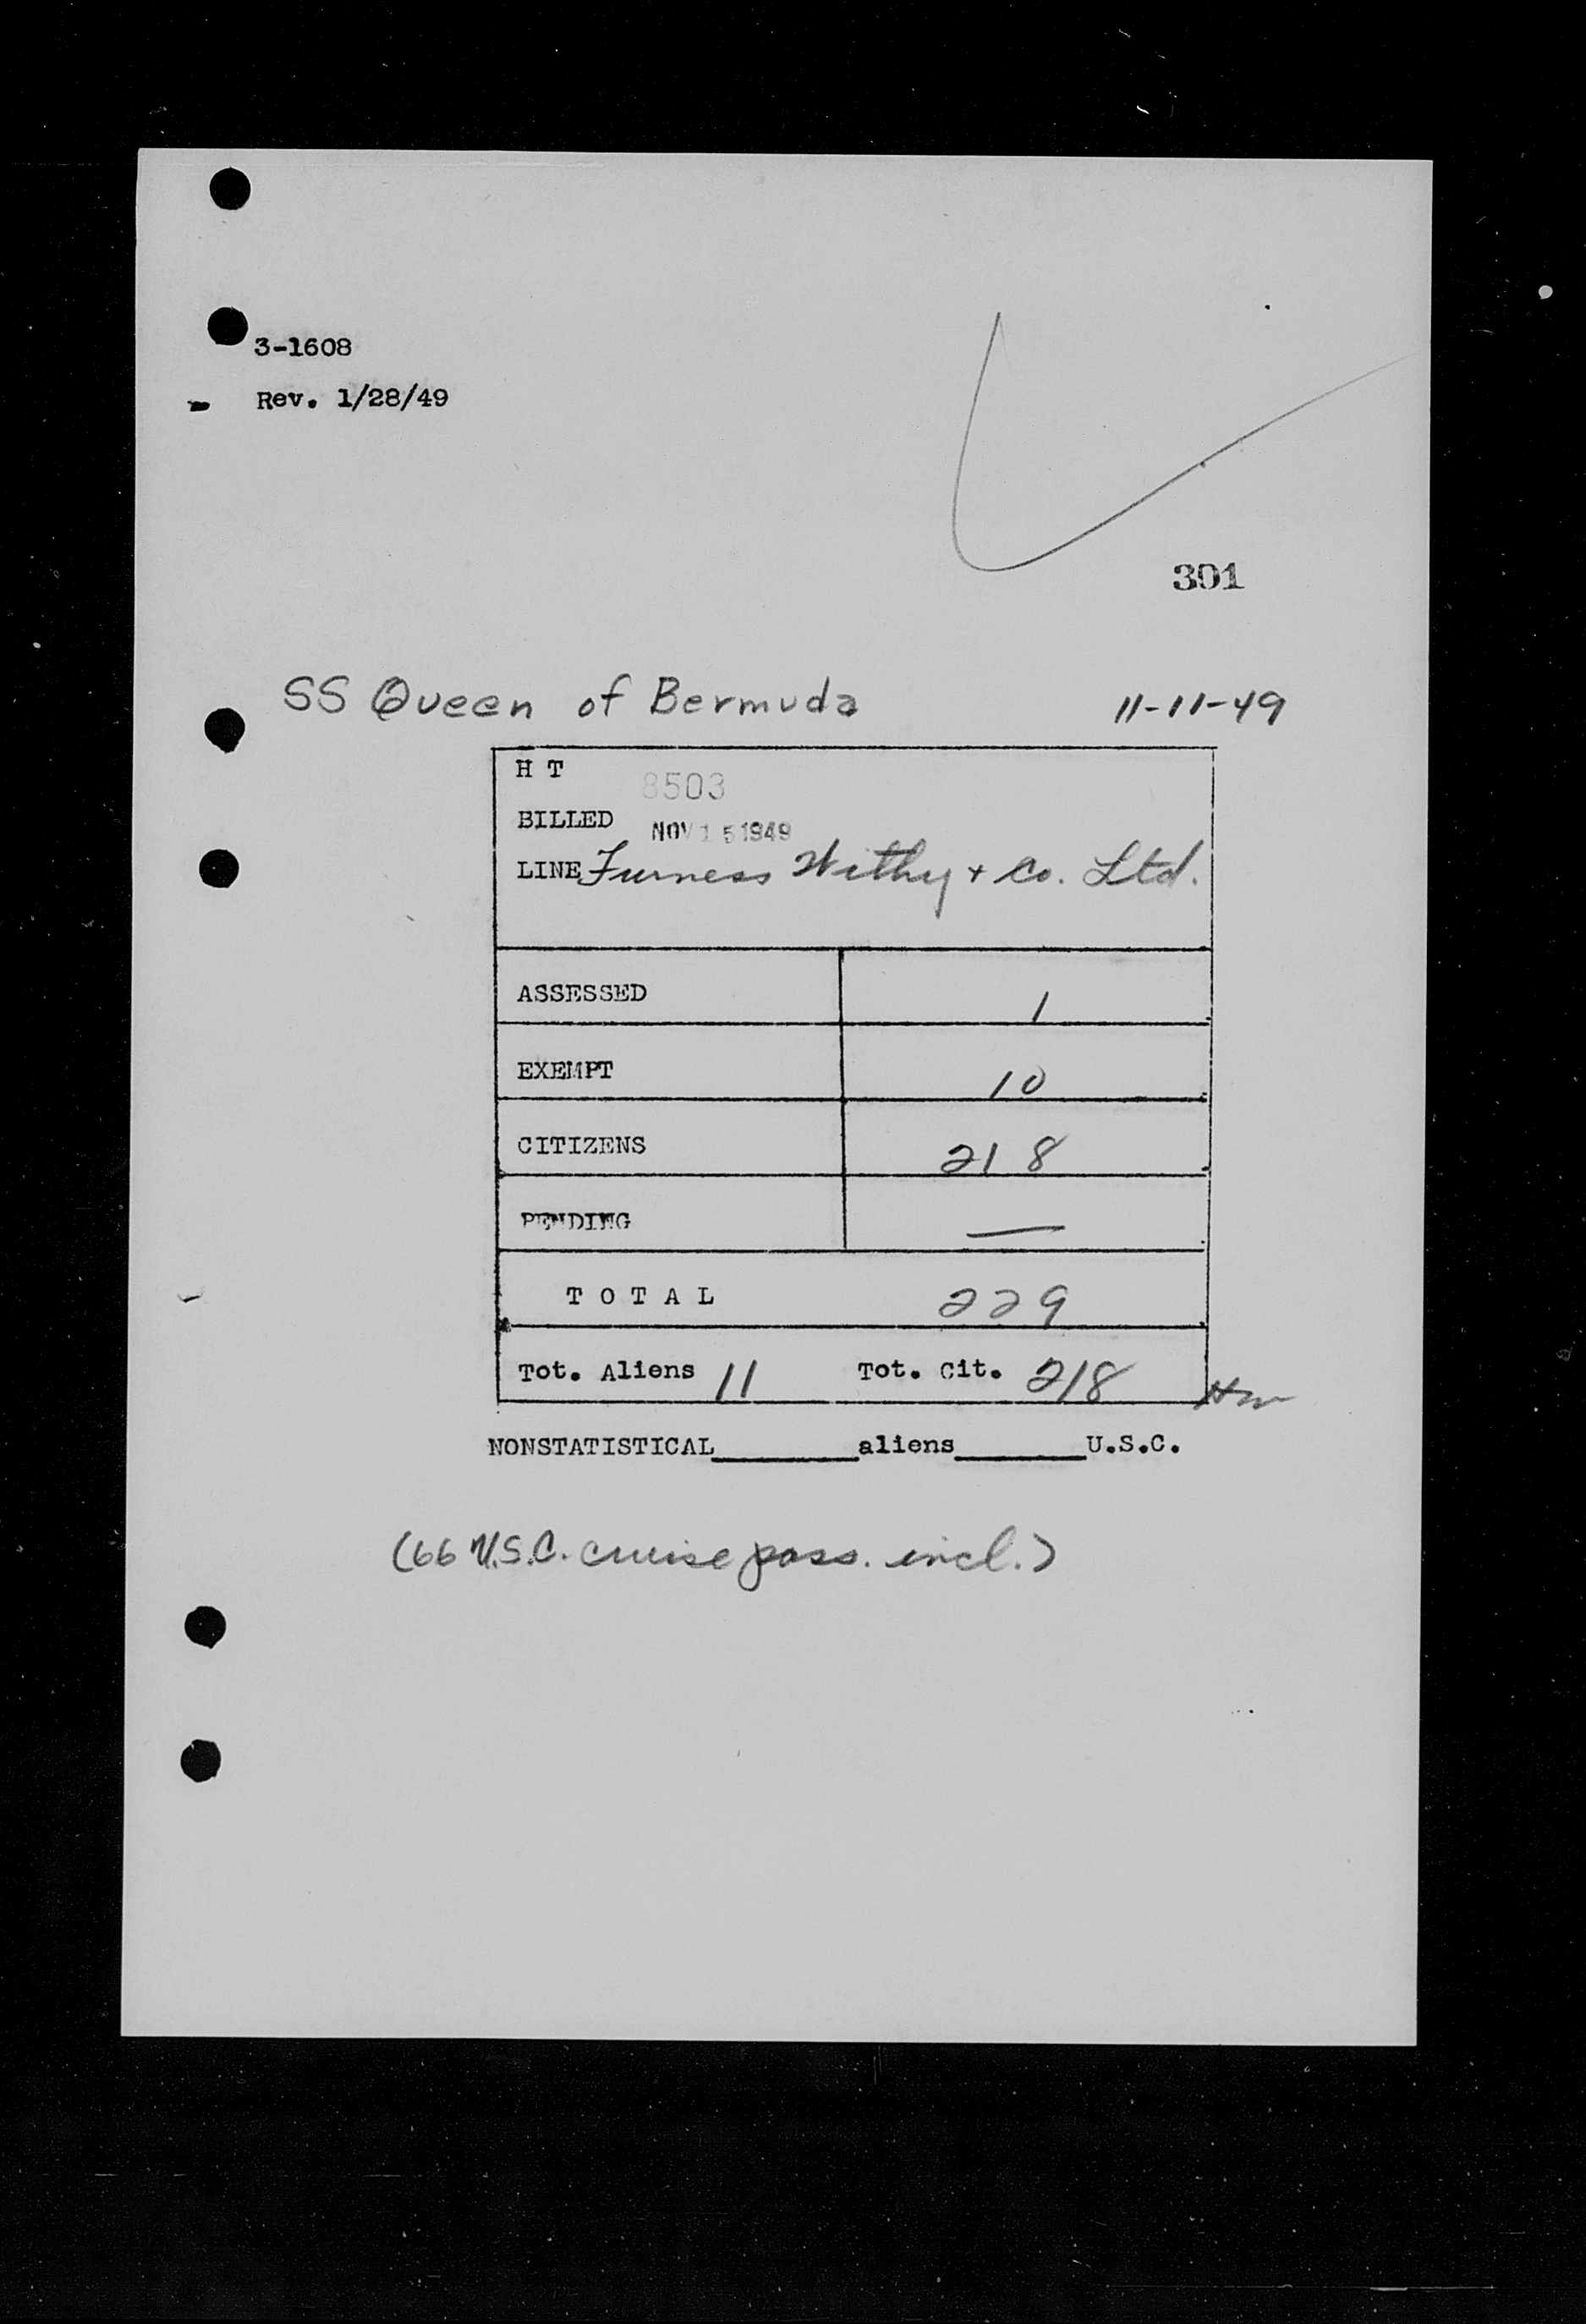 3-1608
Rev. 1/28/49
301
SS Queen of Bermuda 11-11-49
H T 8503
BILLED NOV 15 1949
LINE Furness Withy + Co. Ltd.
ASSESSED 1
EXEMPT 10
CITIZENS 218
PENDING —
TOTAL 229
Tot. Aliens 11 Tot. Cit. 218
NONSTATISTICAL______aliens______U.S.C.
(66 U.S.C. cruise pass. incl.)